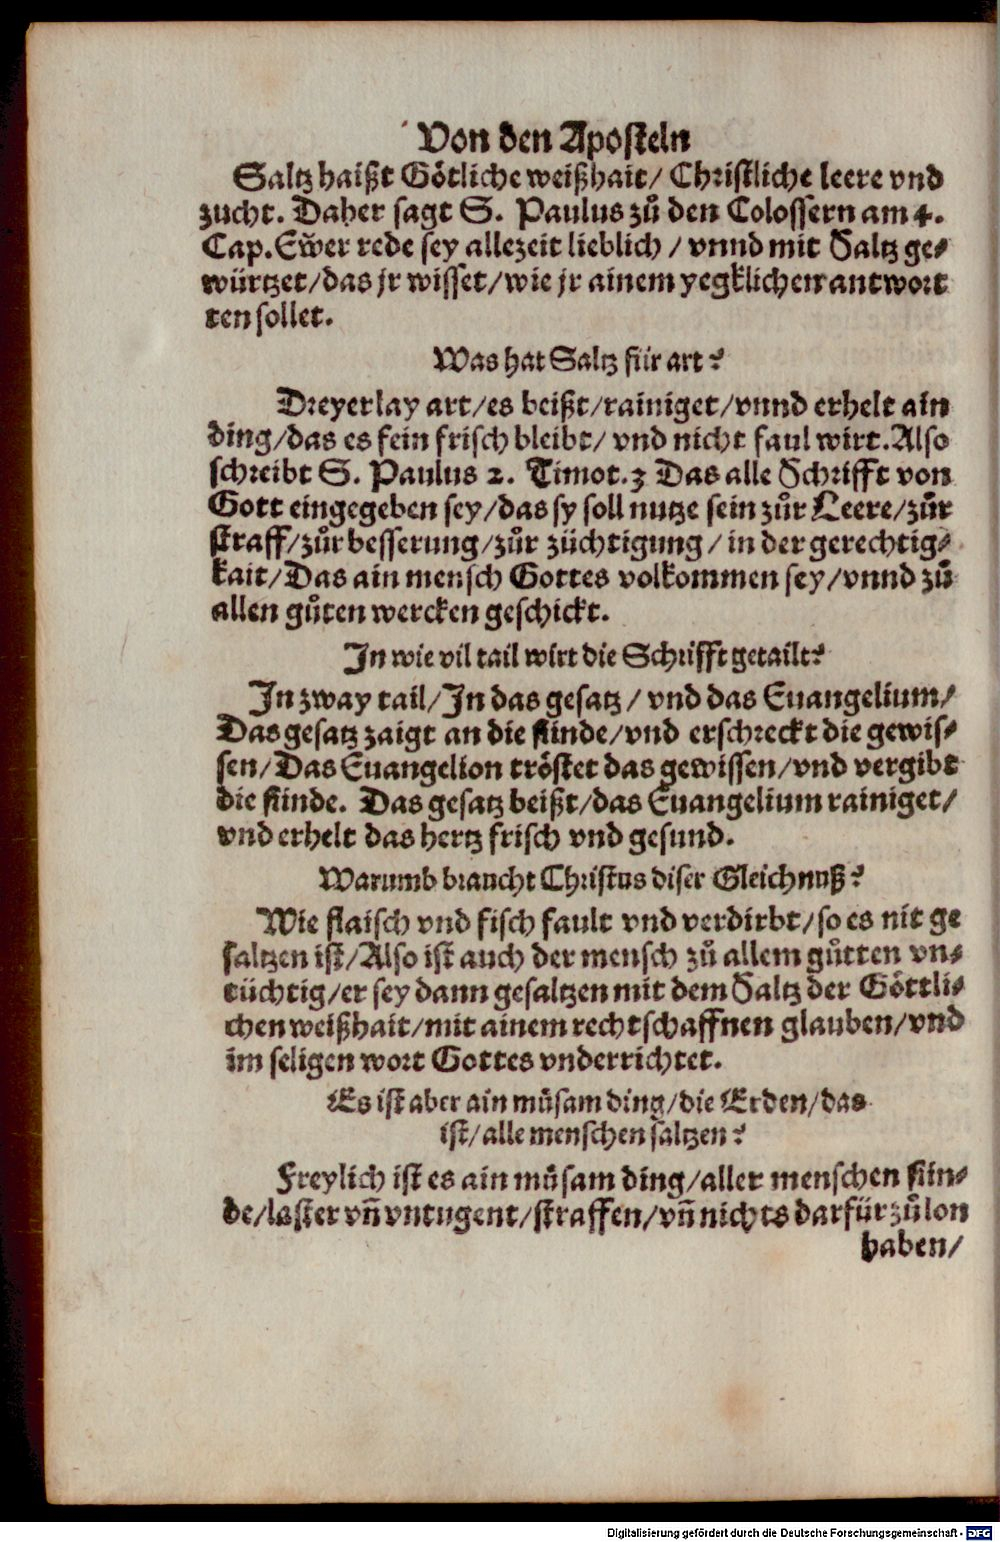 Von den Aposteln
Saltz haißt Götliche weißhait/ Christliche leere vnd
zucht. Daher sagt S. Paulus zů den Colossern am 4.
Cap. Ewer rede sey allezeit lieblich / vnnd mit Saltz ge⸗
würtzet/das jr wisset/wie jr ainem yegklichen antwort
ten sollet.
Was hat Saltz für art?
Dreyerlay art/es beißt/rainiget/vnnd erhelt ain
ding/das es fein frisch bleibt/ vnd nicht faul wirt. Also
schreibt S. Paulus 2. Timot. 3 Das alle Schrifft von
Gott eingegeben sey/das sy soll nutze sein zůr Leere/zůr
straff/zůr besserung/zůr züchtigung / in der gerechtig⸗
kait/Das ain mensch Gottes volkommen sey/vnnd zů
allen gůten wercken geschickt.
In wie vil tail wirt die Schrifft getailt?
In zway tail/In das gesatz / vnd das Euangelium/
Das gesatz zaigt an die sünde/vnd erschreckt die gewis⸗
sen/Das Euangelion tröstet das gewissen/vnd vergibt
die sünde. Das gesatz beißt/das Euangelium rainiget/
vnd erhelt das hertz frisch vnd gesund.
Warumb braucht Christus diser Gleichnuß?
Wie flaisch vnd fisch fault vnd verdirbt/so es nit ge
saltzen ist/Also ist auch der mensch zů allem gůtten vn⸗
tüchtig/er sey dann gesaltzen mit dem Saltz der Göttli⸗
chen weißhait/mit ainem rechtschaffnen glauben/vnd
im seligen wort Gottes vnderrichtet.
Es ist aber ain müsam ding/die Erden/das
ist/alle menschen saltzen?
Freylich ist es ain müsam ding/aller menschen sün⸗
de/laster vñ vntugent/straffen/vñ nichts darfür zů lon
haben/
Digitalisierung gefördert durch die Deutsche Forschungsgemeinschaft - DFG